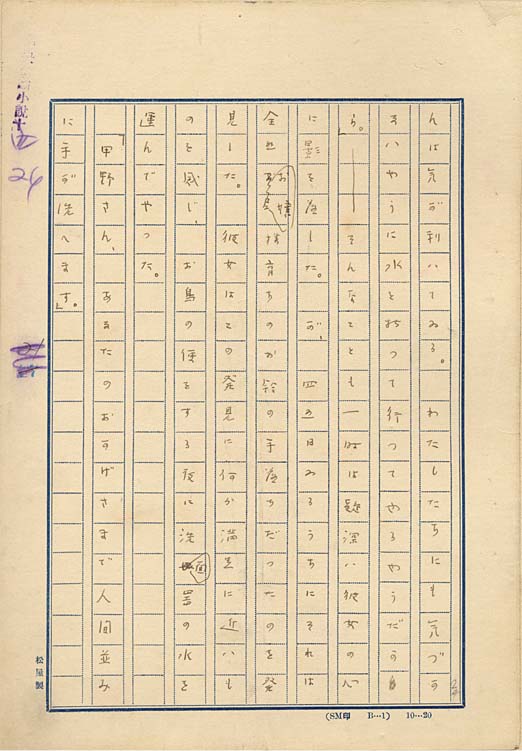 んは気が利いてゐる。わたしたちにも気づか
ないやうに水を持つて行つてやるやうだか
ら。」――そんなことも一時は疑深い彼女の心
に影を落した。が、四五日ゐるうちにそれは
全然お嬢様育ちのお鈴の手落ちだつたのを発
見した。彼女はこの発見に何か満足に近いも
のを感じ、お鳥の便をする度に洗面器の水を
運んでやつた。
「甲野さん、あなたのおかげさまで人間並み
に手が洗へます。」
小説十
24
松屋製
(SM印 B…1) 10…20